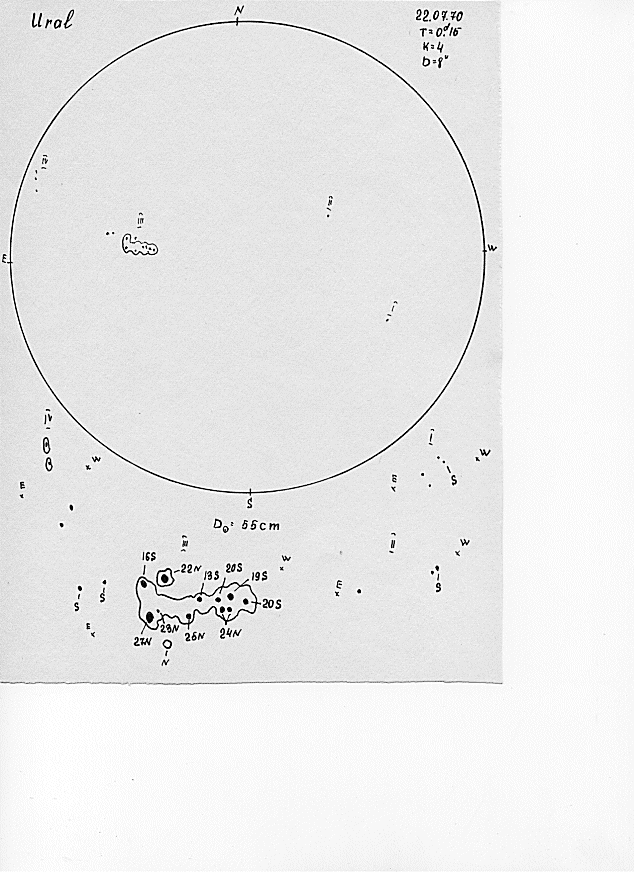 Ural
N
22.07.70
T=0.ᵈ15
K=4
D=8"
IV
II
III
E
W
I
S
D⊙: 55cm
IV
W
E
I
W
E
S
III
16S
22N
13S
20S
19S
W
20S
24N
26N
28N
27N
S
S
E
N
II
W
E
S